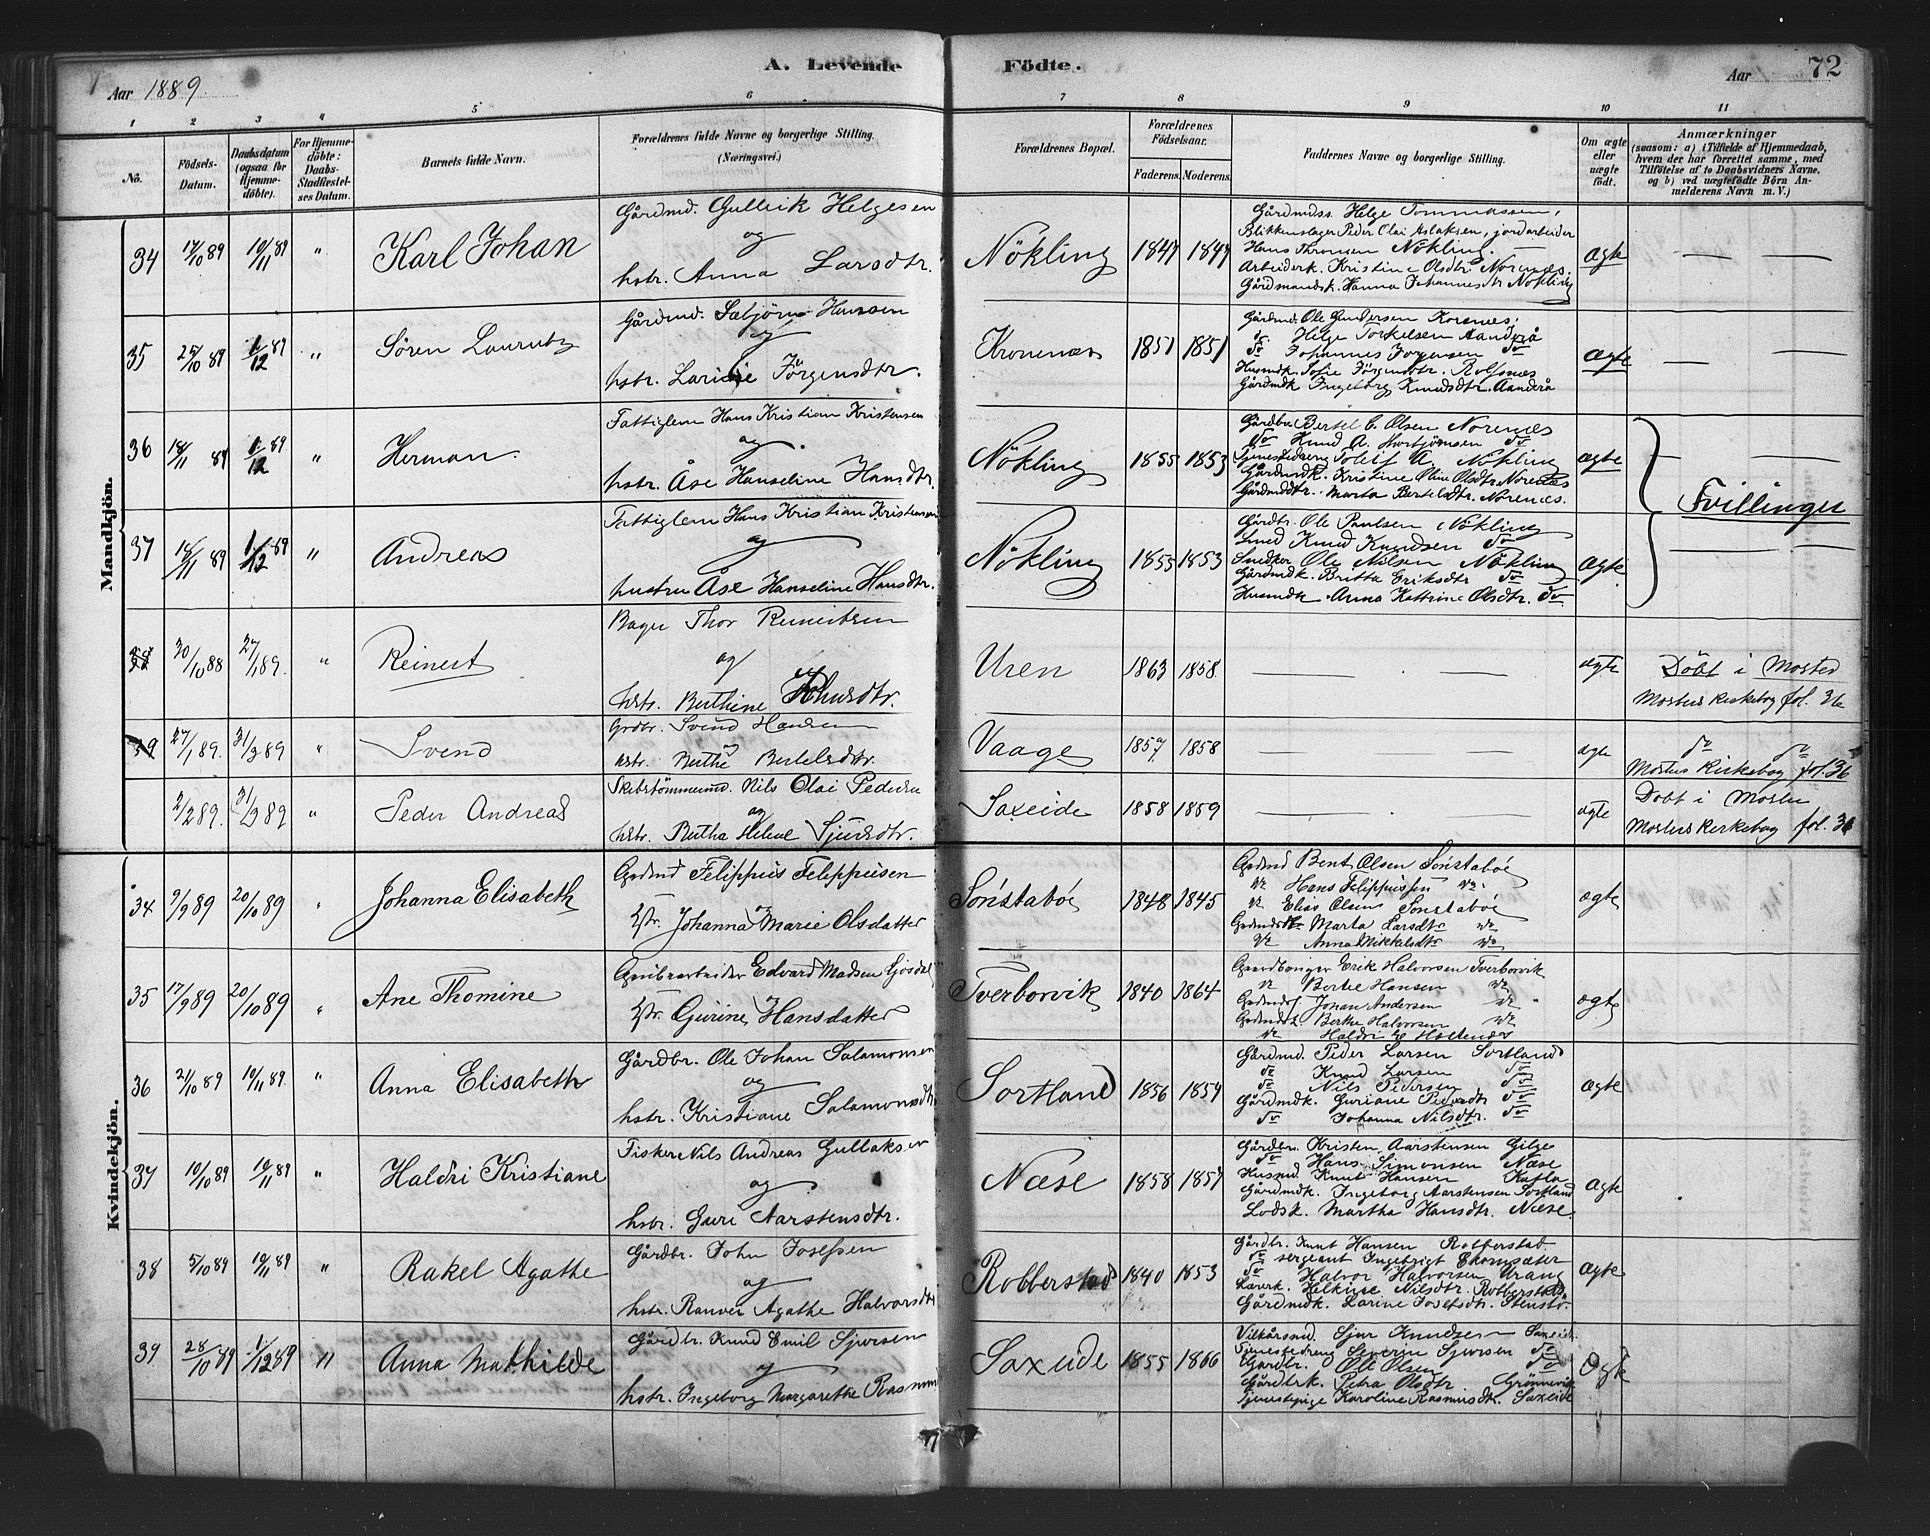 A. Levende Födte.
Aar 1889.
Aar 72
1 2 3 4 5 6 7 8 9 10 11
No. Födsels-Datum. Daabsdatum (ogsaa for Hjemmedöbte). For Hjemmedöbte: Daabs-Stadfæstelses Datum. Barnets fulde Navn. Forældrenes fulde Navne og borgerlige Stilling. (Næringsvei.) Forældrenes Bopæl. Forældrenes Födselsaar. Faderens. Moderens. Faddernes Navne og borgerlige Stilling. Om ægte eller uægte födt. Anmærkninger (saasom: a) i Tilfælde af Hjemmedaab, hvem der har forrettet samme, med Tilföielse af to Daabsvidners Navne, og b) ved uægtefödte Börn Anmelderens Navn m. V.)
Mandkjön.
34 17/10 89 10/11 89 " Karl Johan
Gårdmd. Gullrik Helgesen
og
hstr. Anna Larsdtr.
Nökling 1847 1847
Gårdmdss. Helge Tommassen,
Blikkenslager Peder Olai Aslaksen, jordarbeider
Hans Thomsen Nökling.
Arbeiderk. Kristine Olsdtr Norenæs.
Gårdmandsk. Hanna Johannesdtr Nökling
ægte
35 25/10 89 1/12 89 " Sören Lauritz
Gårdmd. Sæbjörn Hansen
og
hstr. Larine Jörgensdtr.
Kronenæs 1851 1851
Gårdmd. Ole Gundersen Korsnes,
do Helge Torkelsen Aanderå
do Johannes Jorgensen do
Husmdk. Sofie Jörgensdtr. Rolfsnæs
Gårdmdk Ingeborg Knudsdtr. Aanderå
ægte
36 18/11 89 1/12 89 " Herman
Fattiglem Hans Kristian Kristensen
og
hstr. Åse Hanseline Hansdtr.
Nökling 1855 1853
Gårdbr Bertel C. Olsen Norenæs
do Knud A. do
Tolleif A. Nökling
Gårdmdk. Kristine Oline Olsdtr. Norenæs
Gårdmddtr. Marta Bertelsdtr. Norenæs.
ægte
Tvillinger
37 18/11 89 1/12 89 " Andreas
Fattiglem Hans Kristian Kristensen
og
hustru Åse Hanseline Hansdtr.
Nökling 1855 1853
Gårdbr. Ole Paulsen Nökling
Smed Knud Knudsen do
Snedker Ole Nilsen Nökling
Gårdmdk. Britta Eriksdtr do
Husmdk. Anna Kattrine Olsdtr. do
ægte
30/10 88 27/1 89. " Reinert
Bager Thor Reinertsen
og
hstr. Berthine Johnsdtr.
Uren 1863 1858
ægte
Döbt i Moster
Mosters Kirkebog fol. 36
39 27/1 89. 31/3 89 " Svend
Grdbr. Svend Hansen
og
hstr. Berthe Bertelsdtr.
Vaage 1857 1858
ægte
do do
Mosters Kirkebog fol. 36
2/2 89. 31/3 89 " Peder Andreas
Skibstömmermd. Nils Olai Pedersen
og
hstr. Bertha Helene Sjursdtr.
Saxeide 1858 1859
ægte
Döbt i Moster
Mosters Kirkebog fol. 36
Kvindekjön.
34 9/9 89 20/10 89 " Johanna Elisabeth
Grdmd Filippus Filippusen
Hstr. Johanna Marie Olsdatter
Sönstabøe 1848 1845
Grdmd Bent Olsen Sönstabøe
do Hans Filippussen do
do Elias Olsen Sönstabøe
Marta Larsdtr do
do Anna Mikkelsdtr do
ægte
35 17/9 89 20/10 89 " Ane Thomine
Grubearbeider Edvard Madsen Gjøsdal
Hstr. Gurine Hansdatter
Tverborvik 1840 1864
Gaardbruger Erik Halvorsen Tverborvik
do Bertel Hansen do
Johan Andersen do
Berthe Halvorsen do
do Haldri
ægte
36 21/10 89 10/11 89. " Anna Elisabeth
Gårdbr. Ole Johan Salamonsen
og
hstr. Kristiane Salamonsdtr
Sortland 1856 1859
Gårdmd. Peder Larsen Sortland
do Knud Larsen do
do Nils Pedersen do
Gårdmdk. Guriane Pedersdtr do
do Johanna Nilsdtr. do
ægte
37 10/10 89 10/11 89 " Haldri Kristiane
Fisker Nils Andreas Gullaksen
og
hstr. Guri Aarstensdtr.
Næse 1858 1857
Gårdbr. Kristen Aarstensen Gilje
do Hans Simonsen Næse
Husmd. Knut Hansen Kafla
Gårdmdk. Ingeborg Aarstensen Sortland
Lodsk. Martha Hansdtr. Næse.
ægte
38 5/10 89 10/11 89 " Rakel Agathe
Gårdbr. John Josefsen
og
hstr. Ranvei Agathe Halvorsdtr
Robberstad 1840 1853
Gårdbr. Knut Hansen Robberstad
do sergeant Ingebrigt Ekornsæter
do Halvor Halvorsen Urang
Lærerk. Helkine Nilsdtr. Robberstad
Gårdmdk. Larine Josefsdtr. Stenstö
ægte
39 28/10 89 1/12 89 " Anna Mathilde
Gårdbr. Knud Emil Sjursen
og
hstr. Ingeborg Margarethe Rasmusd
Saxeide 1855 1866
Vilkårsmd. Sjur Knudsen Saxeide
Tjenestedreng Severin Sjursen do
Gårdbr. Ole Olsen do
Gårdbrk. Petra Olsdtr Grönnevik
Tjenestepige Karoline Rasmusdtr. Saxeide
Ægte